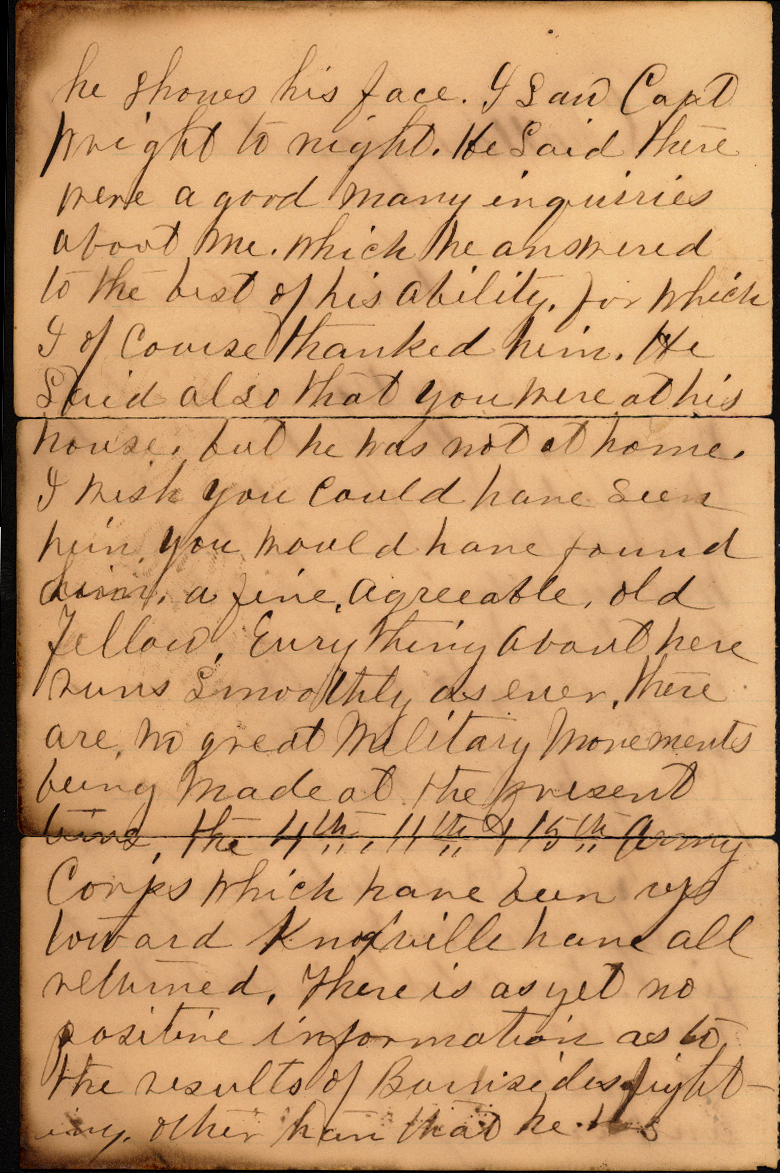 he shows his face. I Saw Capt
Wright to night. He Said there
were a good many inquiries
about me. which he answered
to the best of his ability, for which
I of course thanked him. He
Said also that you were at his
house, but he was not at home.
I wish you could have seen
him, you would have found
him, a fine, agreeable, old
fellow. Everything about here
runs smoothly as ever, there
are, no great Military Movements
being made at the present
time, the 4th, 11th & 15th Army
Corps which have been up
toward Knoxville have all
returned. There is as yet no
positive information as to
the results of Burnsides fight-
ing, other than that he has